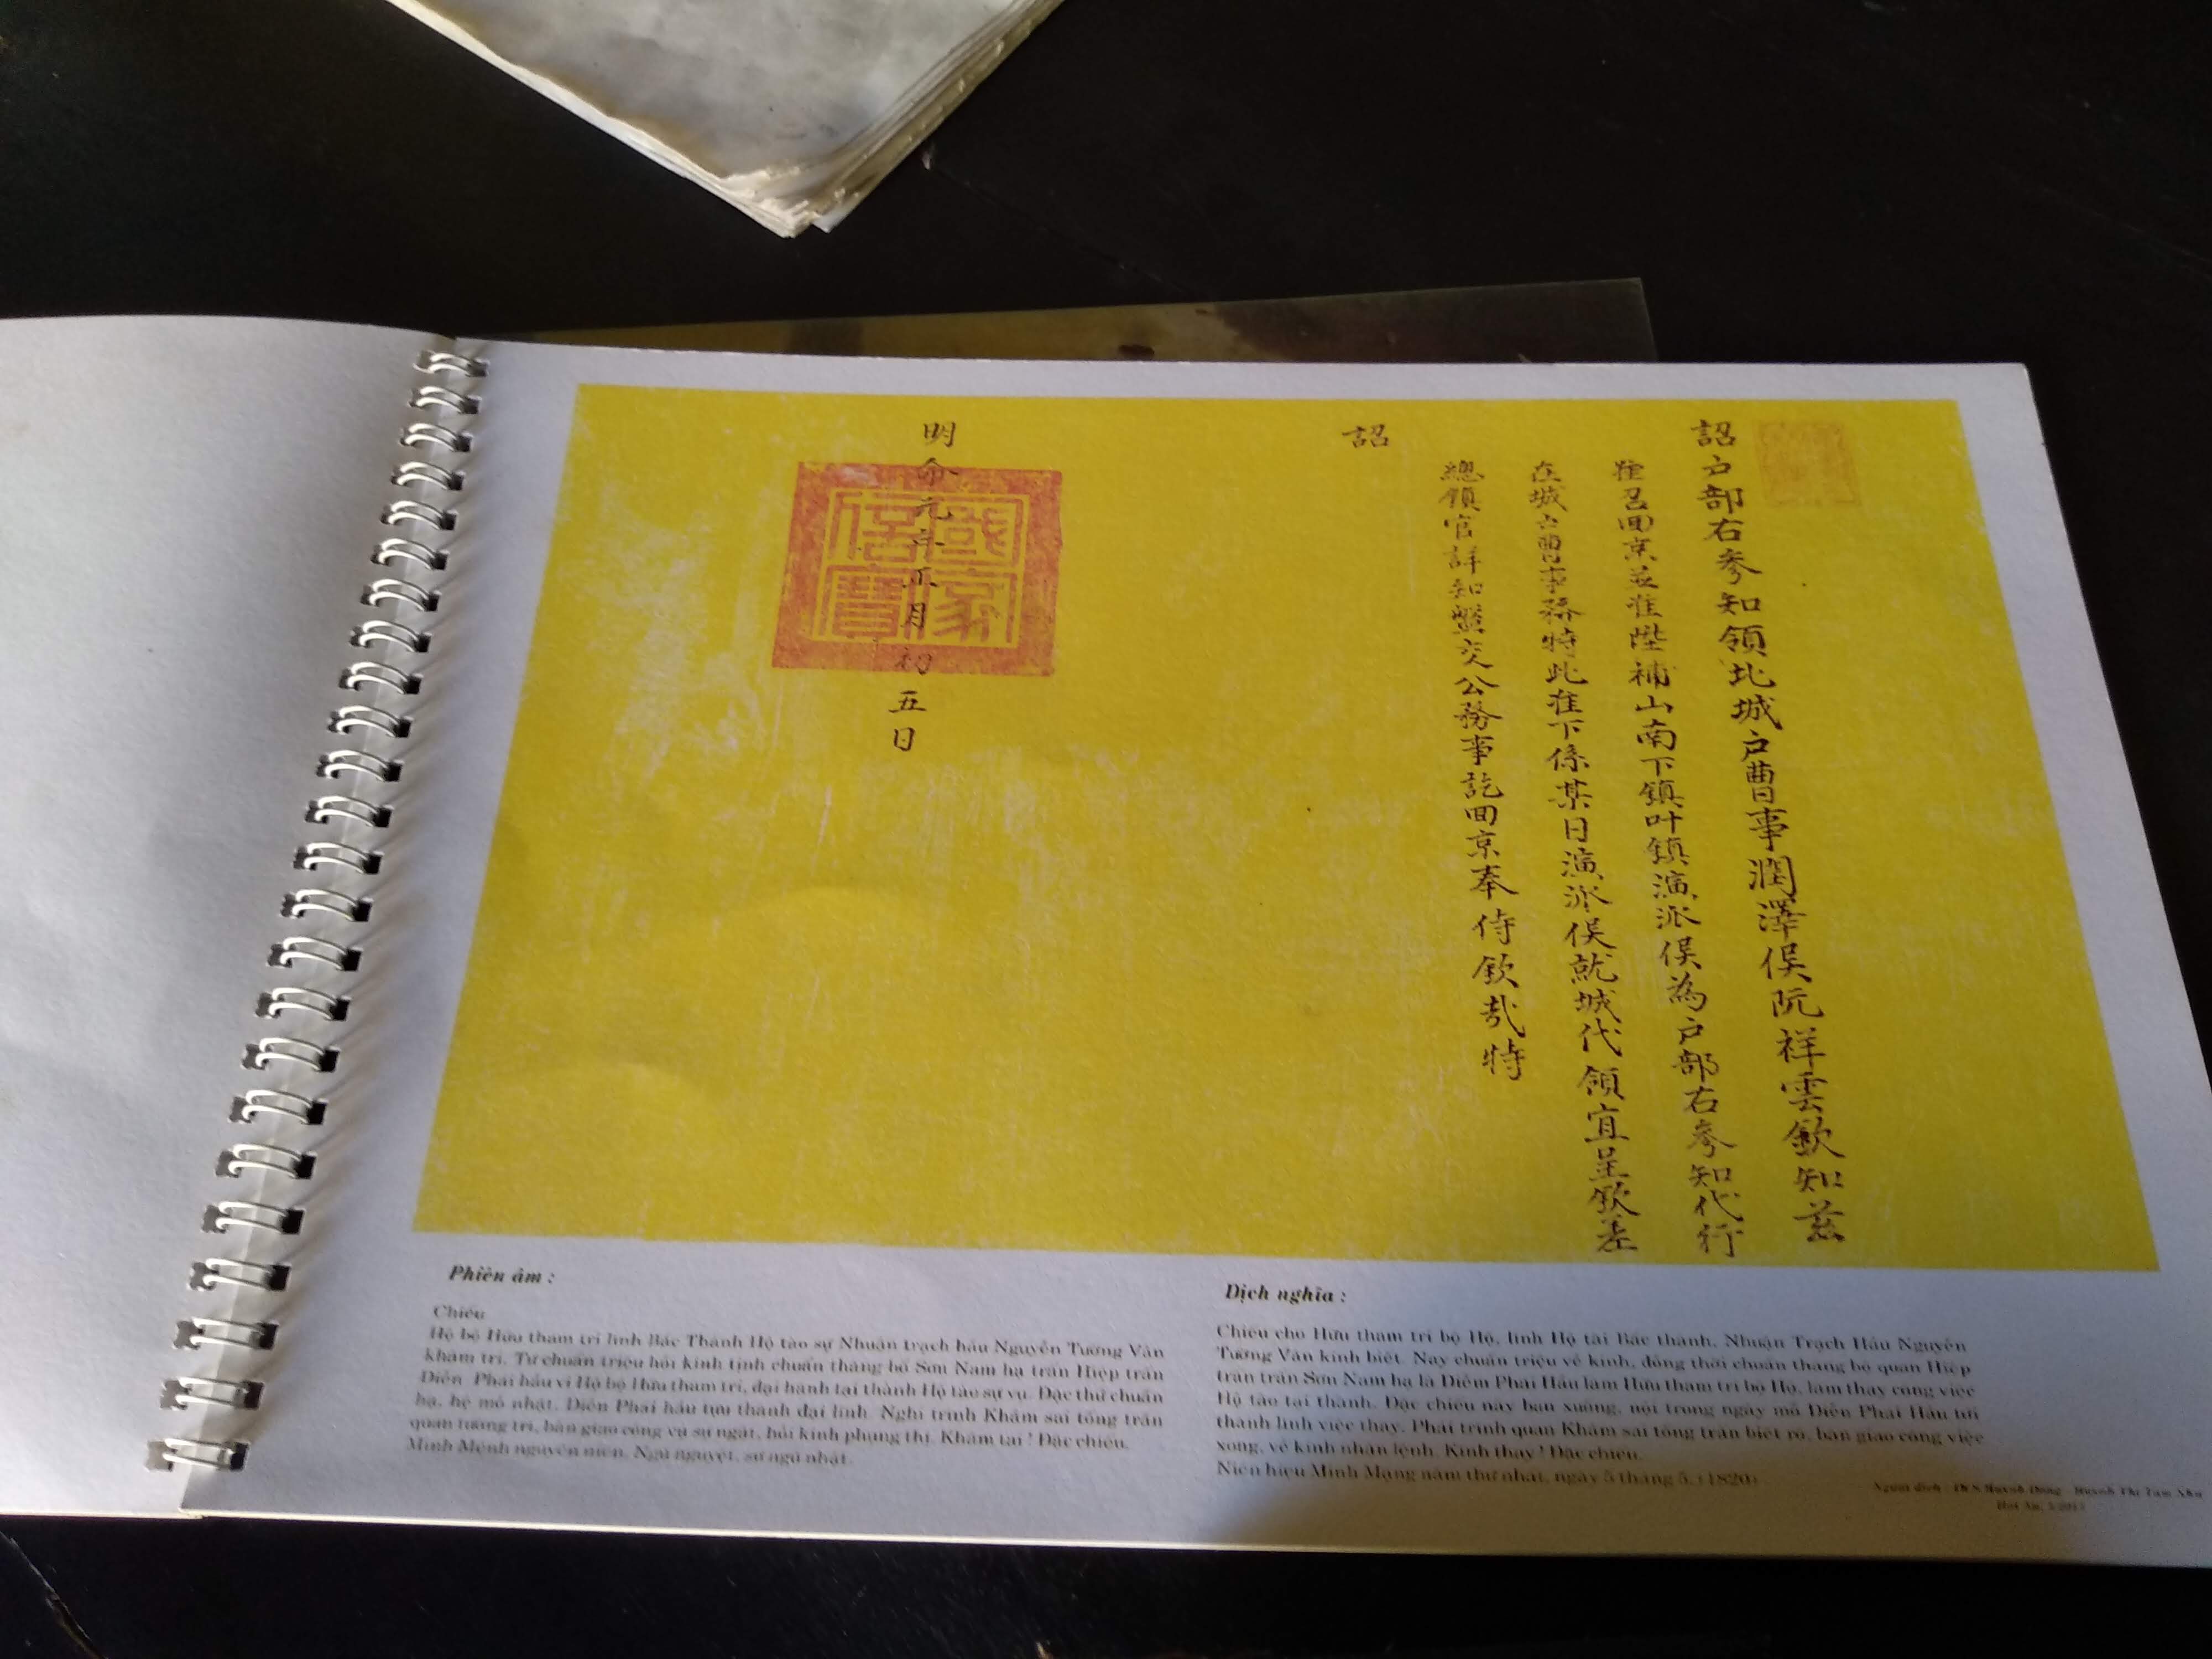 詔户部右參知領北城户曹事潤澤侯阮祥雲欽知茲
准召回京並准陞補山南下鎮叶鎮演派侯為户部右參知代行
在城户曹事務特此准下係某日演派侯就城代領宜呈欽差
總鎮官詳知盤交公務事訖回京奉侍欽哉特
詔
明命元年五月初五日
國家信寶
Phiên âm :
Chiếu
Hộ bộ Hữu tham tri lĩnh Bắc Thành Hộ tào sự Nhuận trạch hầu Nguyễn Tường Vân
khâm tri. Tư chuẩn triệu hồi kinh tịnh chuẩn thăng bổ Sơn Nam hạ trấn Hiệp trấn
Diễn Phái hầu vi Hộ bộ Hữu tham tri, đại hành tại thành Hộ tào sự vụ. Đặc thử chuẩn
hạ, hệ mổ nhật. Diễn Phái hầu tựu thành đại lĩnh. Nghi trình Khâm sai tổng trấn
quan tường tri, bàn giao công vụ sự ngật, hồi kinh phụng thị. Khâm tai ! Đặc chiếu.
Minh Mệnh nguyên niên. Ngũ nguyệt, sơ ngũ nhật.
Dịch nghĩa :
Chiếu cho Hữu tham tri bộ Hộ, lĩnh Hộ tài Bắc thành, Nhuận Trạch Hầu Nguyễn
Tường Vân kính biết. Nay chuẩn triệu về kinh, đồng thời chuẩn thăng bổ quan Hiệp
trấn trấn Sơn Nam hạ là Diễm Phái Hầu làm Hữu tham tri bộ Hộ, làm thay công việc
Hộ tào tại thành. Đặc chiếu này ban xuống, nội trong ngày mổ Diễn Phái Hầu tới
thành lĩnh việc thay. Phải trình quan Khâm sai tổng trấn biết rõ, bàn giao công việc
xong, về kinh nhận lệnh. Kính thay ! Đặc chiếu.
Niên hiệu Minh Mạng năm thứ nhất, ngày 5 tháng 5, (1820)
Người dịch : Huỳnh Thị Tam
Hội An,